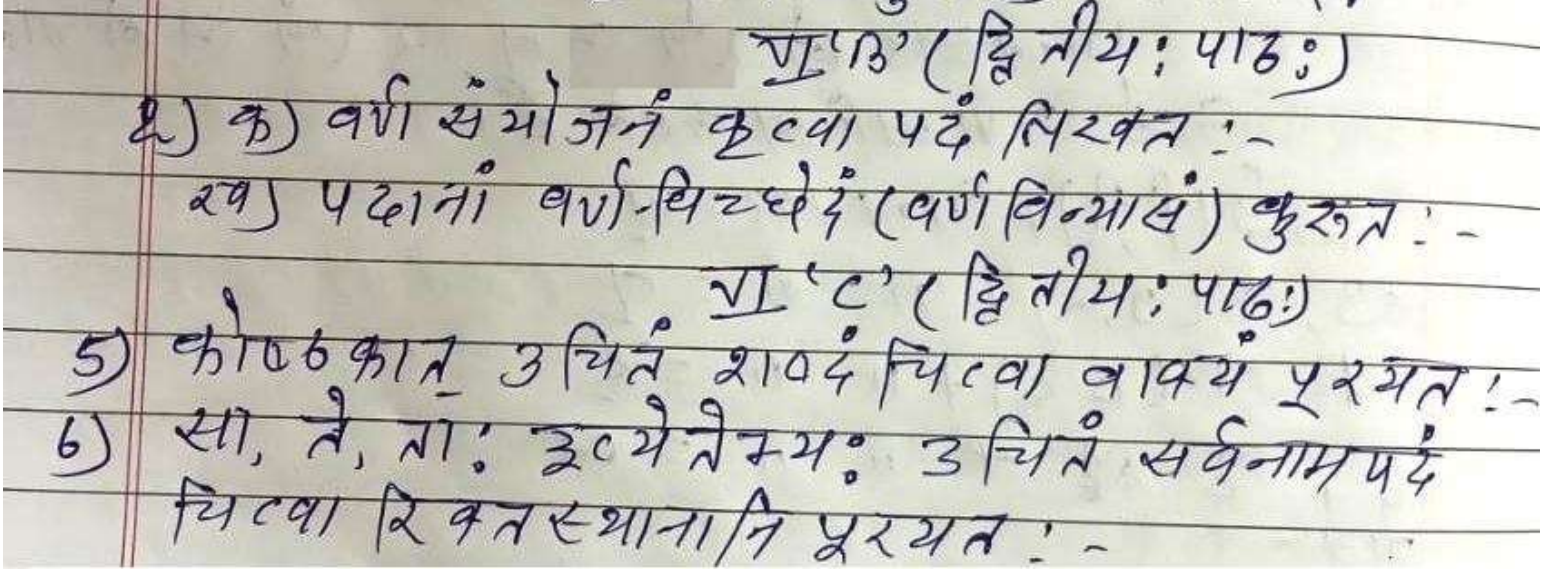 VI 'B' (द्वितीय: पाठ:)
2) क) वर्ण संयोजनं कृत्वा पदं लिखत :-
ख) पदानां वर्ण-विच्छेदं (वर्ण विन्यासं) कुरुत :-
VI 'C' (द्वितीय: पाठ:)
5) कोष्ठकात् उचितं शब्दं चित्वा वाक्यं पूरयत :-
6) सा, ते, ता: इत्येतेभ्य: उचितं सर्वनामपदं
चित्वा रिक्तस्थानानि पूरयत :-